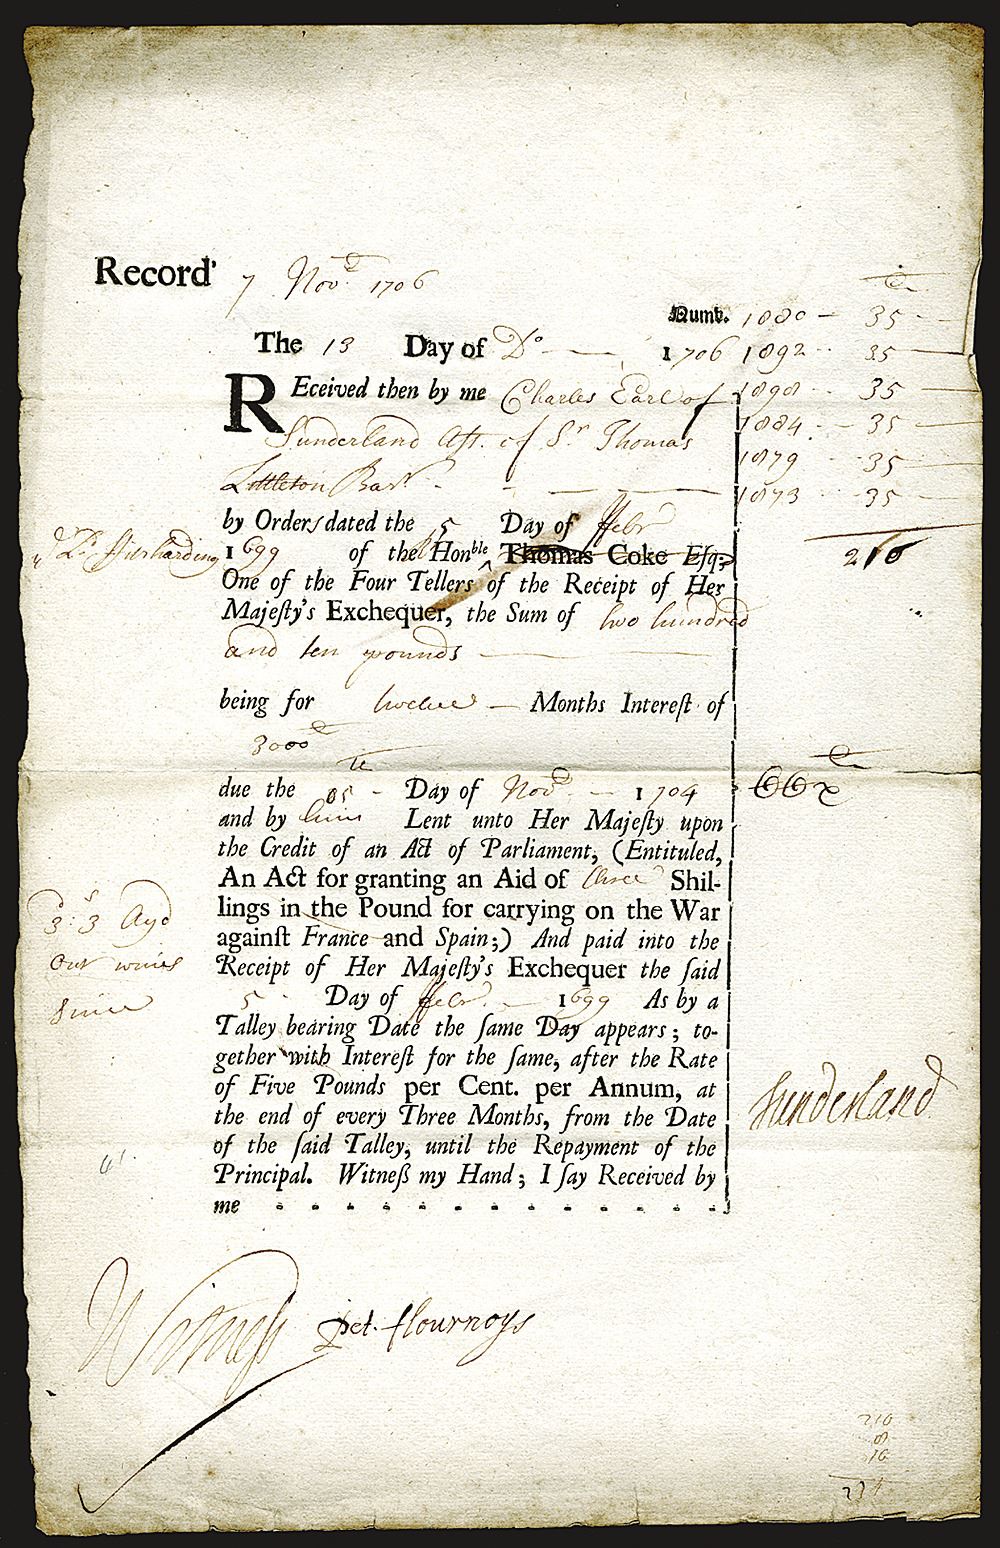 Record' 7 Novr 1706
Numb. 1880 - 35
The 13 Day of Do 1706 1892 - 35
REceived then by me Charles Earl of 1898 - 35
Sunderland Ast. of Sr Thomas 1884 - 35
Littleton Bart - 1879 - 35
1873 - 35
by Orders dated the 5 Day of ffebr
1699 of the Honble Thomas Coke Eſq; 210
One of the Four Tellers ^ of the Receipt of Her
Majeſty's Exchequer, the Sum of two hundred
and ten pounds
being for twelve Months Intereſt of
3000
due the 05 - Day of Novr 1704
and by him Lent unto Her Majeſty upon
the Credit of an Act of Parliament, (Entituled,
An Act for granting an Aid of three Shil-
lings in the Pound for carrying on the War
againſt France and Spain;) And paid into the
Receipt of Her Majeſty's Exchequer the ſaid
5 Day of ffebr. 1699 As by a
Talley bearing Date the ſame Day appears; to-
gether with Intereſt for the ſame, after the Rate
of Five Pounds per Cent. per Annum, at
the end of every Three Months, from the Date
of the ſaid Talley, until the Repayment of the
Principal. Witneß my Hand; I ſay Received by
me
3: 3 Ayd
Our
Since
Sunderland
Witneſs Pet. flournoys
210
8
16
234